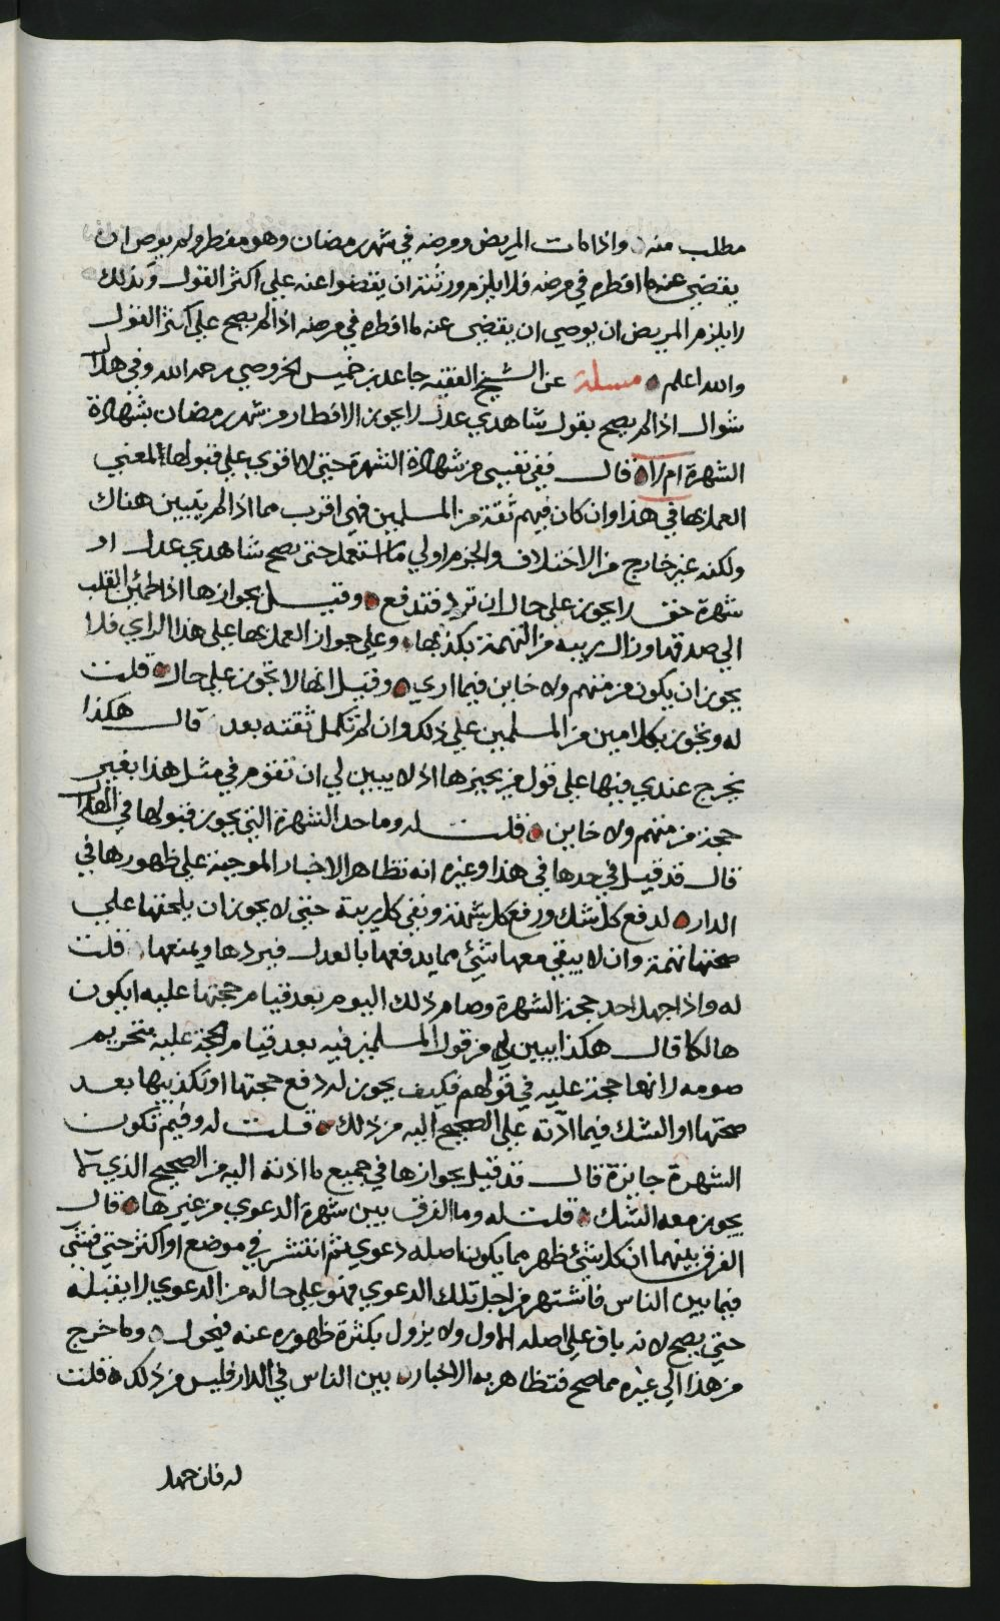 مطلب منه واذا مات المريض ومرضه في شهر رمضان وهو مفطر ولم يوص ان
يقضى عنه ما افطره في مرضه فلا يلزم ورثته ان يقضوا عنه على اكثر القول وكذلك
لا يلزم المريض ان يوصي ان يقضى عنه ما افطره في مرضه اذا لم يصح على اكثر القول
والله اعلم مسئلة عن الشيخ الفقيه جاعد بن خميس الخروصي رحمه الله وفي هلال
شوال اذا لم يصح بقول شاهدي عدل ايجوز الافطار من شهر رمضان بشهادة
الشهرة ام لا قال ففي نفسي من شهادة الشهرة حتى لا اقوى على قبولها لمعنى
العمل بها في هذا وان كان فيهم ثقة من المسلمين فهي اقرب مما اذا لم يتبين هناك
ولكنه غير خارج من الاختلاف والحزم اولى ما استعمل حتى يصح شاهدي عدل او
شهرة حق لا يجوز على حال ان ترد فتدفع وقيل بجوازها اذا اطمئن القلب
الى صدقها وزال الريبه من التهمة بكذبها وعلى جواز العمل بها على هذا الراي فلا
يجوز ان يكون من متهم ولا خاين فيما ارى وقيل انها لا تجوز على حال قلت
له وتجوز بكل امين من المسلمين على ذلك وان لم تكمل ثقته بعد قال هكذا
يخرج عندي فيها على قول من يجيزها اذ لا يبين لي ان تقوم في مثل هذا بغير
حجة من متهم ولا خاين قلت له وما حد الشهرة التي يجوز قبولها في الهلال
قال قد قيل في حدها في هذا وغيره انه تظاهر الاخبار الموجبة على ظهورها في
الدار لدفع كل شك ورفع كل شبهة ونفي كل ريبة حتى لا يجوز ان يلحقها على
صحتها تهمة وان لا يبقى معها شئ مما يدفعها بالعدل فيردها ويمنعها قلت
له واذا جهل احد حجة الشهرة وصام ذلك اليوم بعد قيام حجتها عليه ايكون
هالكا قال هكذا يبين لي من قول المسلمين فيه بعد قيام الحجة عليه بتحريم
صومه لانها حجة عليه في قولهم فكيف يجوز له دفع حجتها او تكذيبها بعد
صحتها او الشك فيما ادته على الصحيح اليه من ذلك قلت له وفيم تكون
الشهرة جايزة قال قد قيل بجوازها في جميع ما ادته اليه من الصحيح الذي لا
يجوز معه الشك قلت له وما الفرق بين شهرة الدعوى من غيرها قال
الفرق بينهما ان كل شئ ظهر مما يكون اصله دعوى ثم انتشر في موضع او اكثر حتى فشى
فيما بين الناس فاشتهر من اجل تلك الدعوى فهو على حاله من الدعوى لا يقبله
حتى يصح لانه باق على اصله الاول ولا يزول بكثرة ظهوره عنه فيحول وما خرج
من هذا الى غيره مما صح فتظاهر به الاخبار بين الناس في الدار فليس من ذلك قلت
له فان جهل